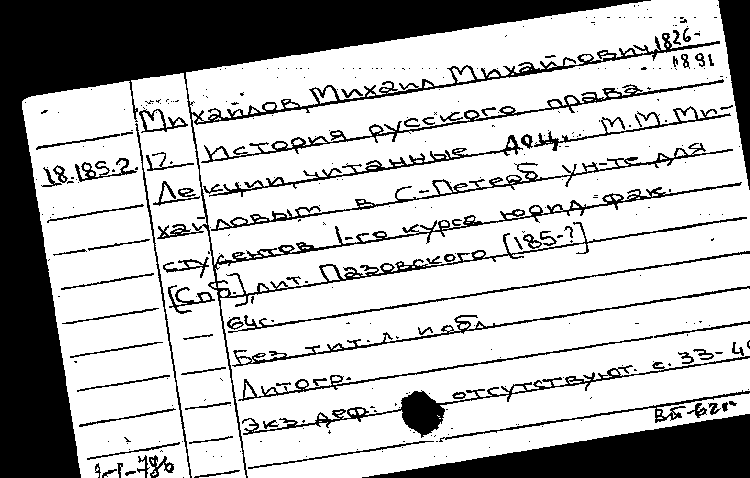 Михайлов, Михаил Михайлович, 1826-
1891
18.185.2. 17. История русского права.
Лекции, читанные доц. М.М. Ми-
хайловым в С-Петерб ун-те для
студентов 1-го курса юрид. фак.
[Спб.], лит. Пазовского, [185-?]
64с.
Без тит. л. и обл.
Литогр.
Экз. деф: отсутствуют с. 33-